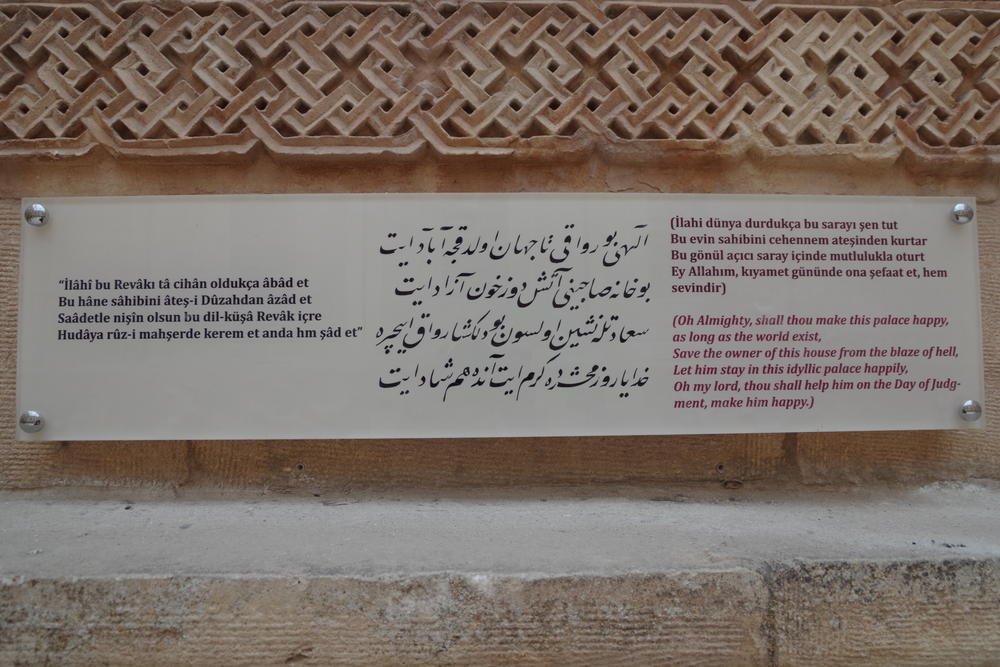 “İlâhî bu Revâkı tâ cihân oldukça âbâd et
Bu hâne sâhibini âteş-i Dûzahdan âzâd et
Saâdetle nişîn olsun bu dil-küşâ Revâk içre
Hudâya rûz-i mahşerde kerem et anda hm şâd et”
الهی بو رواقی تا جهان اولدقجه آباد ایت
بو خانه صاحبنی آتش دوزخون آزاد ایت
سعادتله نشین اولسون بو دلکشا رواق ایچره
خدایا روز محشرده کرم ایت آنده هم شاد ایت
(İlahi dünya durdukça bu sarayı şen tut
Bu evin sahibini cehennem ateşinden kurtar
Bu gönül açıcı saray içinde mutlulukla oturt
Ey Allahım, kıyamet gününde ona şefaat et, hem
sevindir)
(Oh Almighty, shall thou make this palace happy,
as long as the world exist,
Save the owner of this house from the blaze of hell,
Let him stay in this idyllic palace happily,
Oh my lord, thou shall help him on the Day of Judg-
ment, make him happy.)